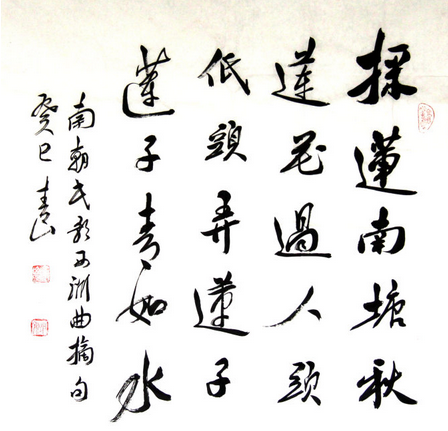 採蓮南塘秋
蓮花過人頭
低頭弄蓮子
蓮子青如水
南朝民歌西洲曲摘句
癸巳青山